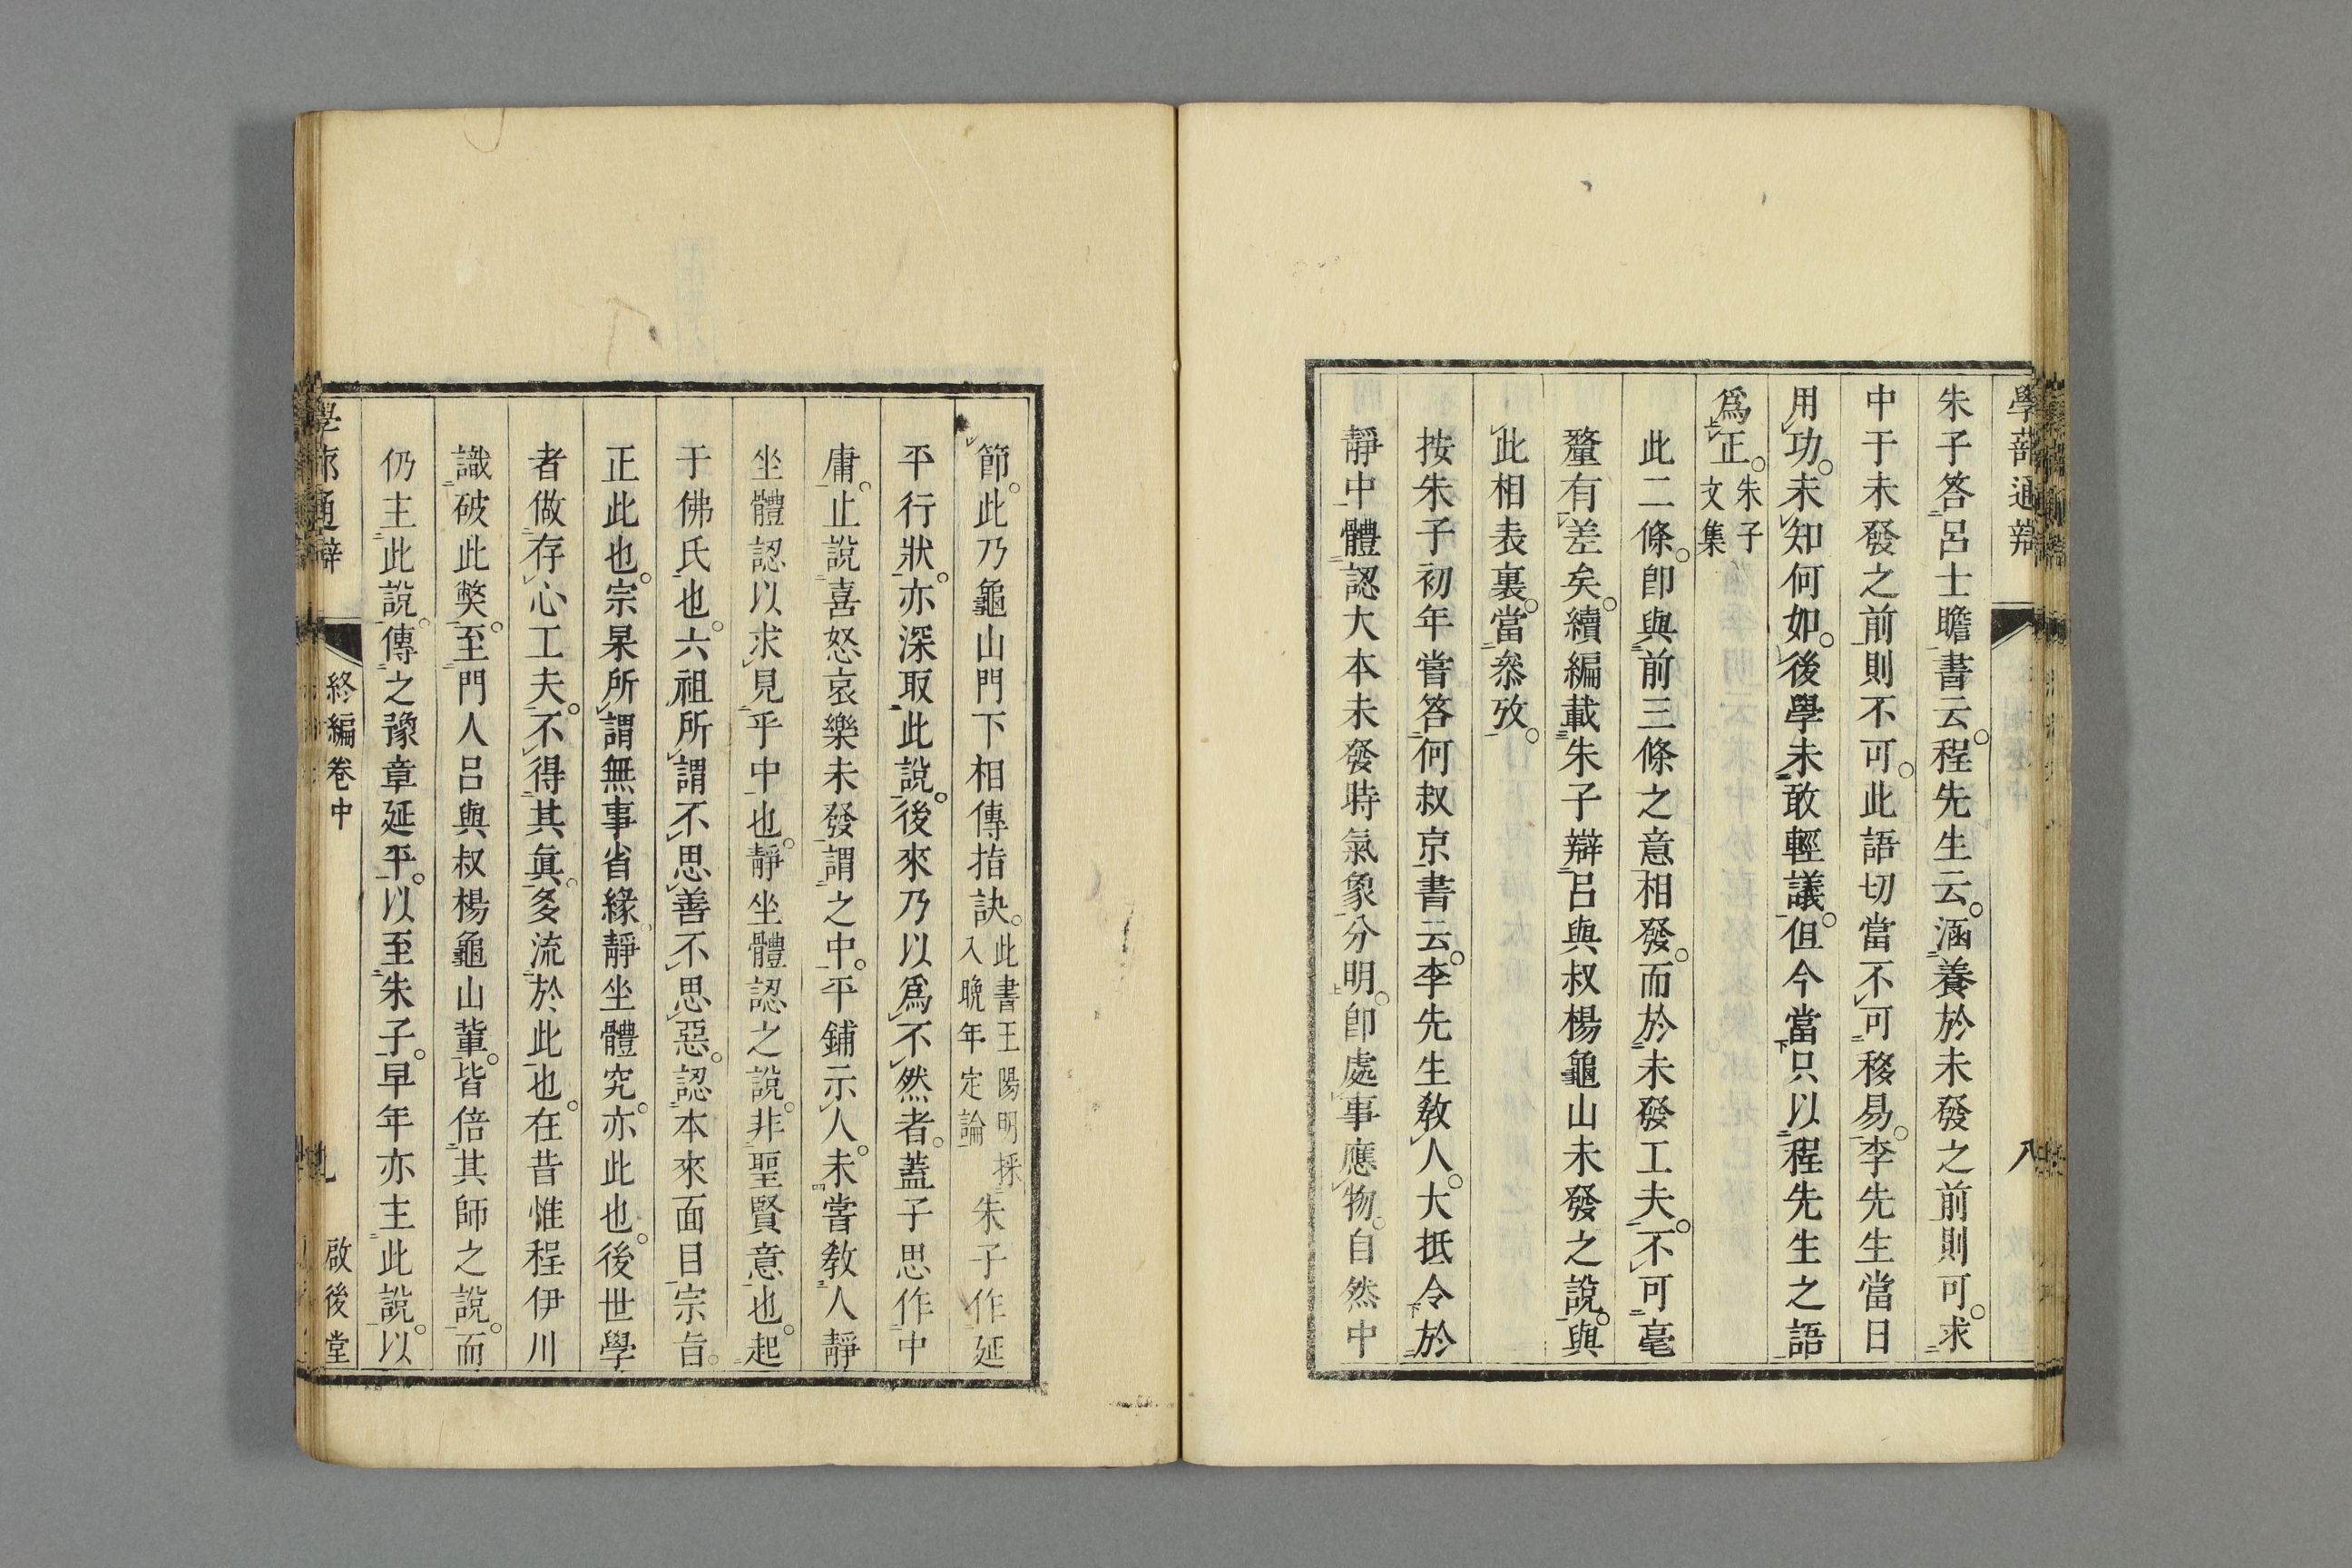 學蔀通辯
八
朱子答呂士瞻書云程先生云涵養於未發之前則可求
中于未發之前則不可此語切當不可移易李先生當日
用功未知何如後學未敢輕議但今當只以程先生之語
爲正朱子文集
此二條卽與前三條之意相發而於未發工夫不可毫
釐有差矣續編載朱子辯呂與叔楊龜山未發之說與
此相表裏當叅攷
按朱子初年嘗答何叔京書云李先生敎人大抵令於
靜中體認大本未發時氣象分明卽處事應物自然中
節此乃龜山門下相傳指訣此書王陽明採入晚年定論朱子作延
平行狀亦深取此說後來乃以爲不然者蓋子思作中
庸止說喜怒哀樂未發謂之中平鋪示人未嘗敎人靜
坐體認以求見乎中也靜坐體認之說非聖賢意也起
于佛氏也六祖所謂不思善不思惡認本來面目宗旨
正此也宗杲所謂無事省緣靜坐體究亦此也後世學
者做存心工夫不得其眞多流於此也在昔惟程伊川
識破此獘至門人呂與叔楊龜山輩皆倍其師之說而
仍主此說傳之豫章延平以至朱子早年亦主此說以
學蔀通辯
終編卷中
九
啟後堂